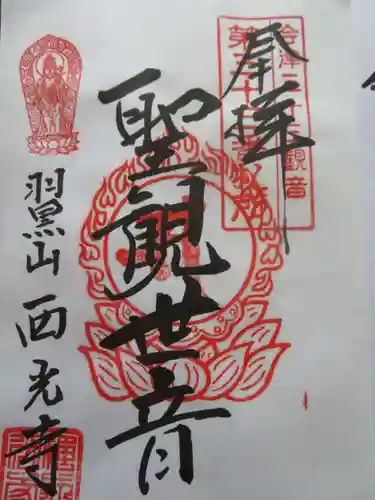 会津三十三観音
第三十三番札所
奉拝
聖観世音
羽黒山 西光寺